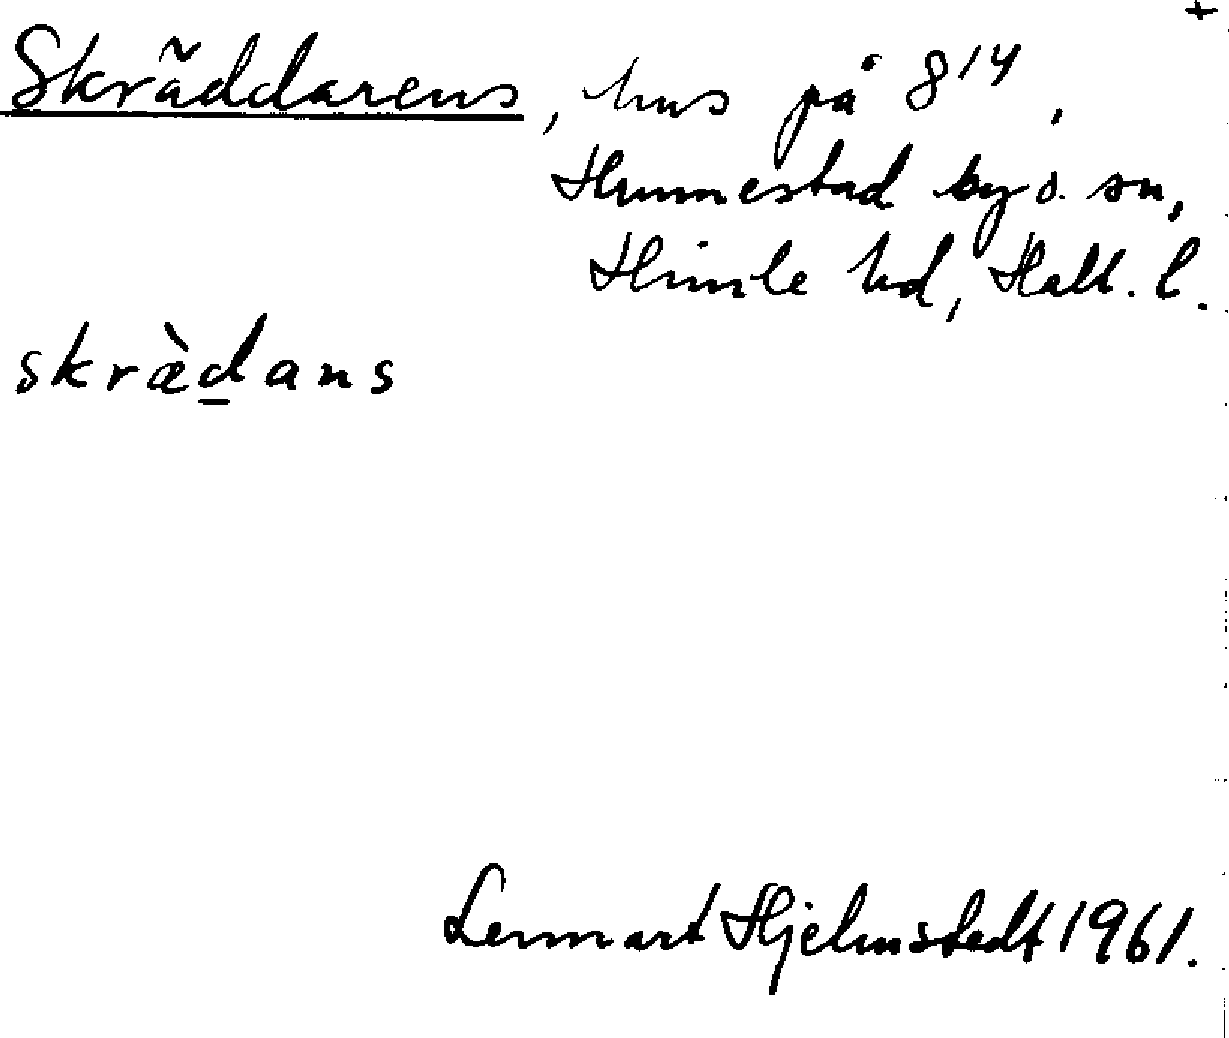 +
Skräddarens, hus på 8¹⁴,
Hunnestad by o. sn,
Himle hd, Hall. l.
skrædans
Lennart Hjelmstedt 1961.